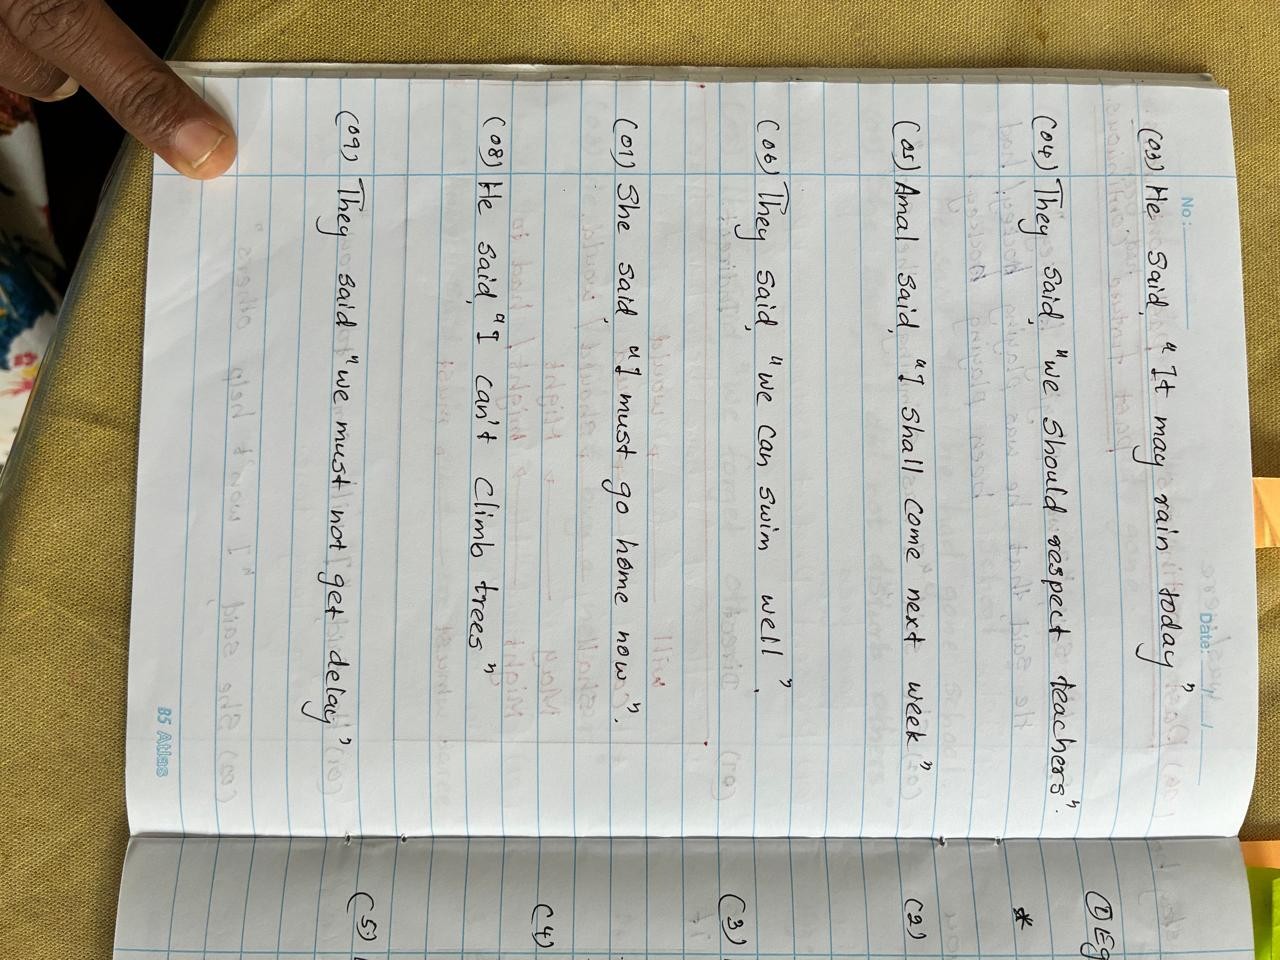 No:
Date:
(03) He said, "It may rain today"
(04) They said, "we should respect teachers".
(05) Amal said, "I shall come next week"
(06) They said, "we can swim well".
(07) She said, "I must go home now".
(08) He said, "I can't climb trees"
(09) They said "we must not get delay"
B5 Atlas
(1) Eg
*
(2)
(3)
(4)
(5)